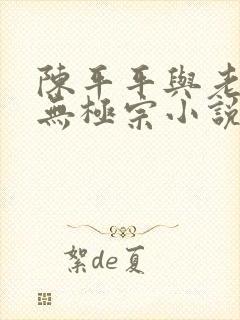 陳平平與老
無極宗小說
絮de夏